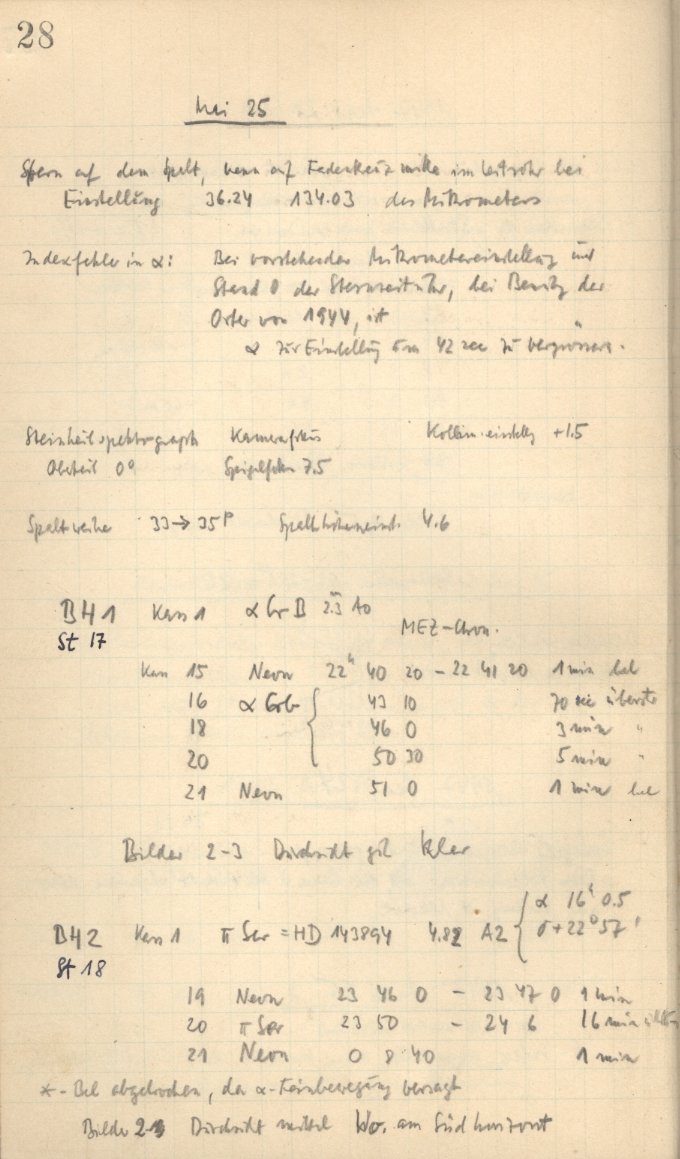 28
Mai 25
Stern auf dem Spalt, wenn auf Fadenkreuz mitte im Leitrohr bei
Einstellung 36.24 134.03 des Mikrometers
Indexfehler in α: Bei vorstehender Mikrometereinstellung und
Stand 0 der Sternzeituhr, bei Benutz der
Örter von 1944, ist
α zur Einstellung um 42 sec zu vergrössern.
Steinheilspektrograph Kamerafokus Kollim.einstellg +1.5
0° 7.5
Spaltweite 33→35 Spalthöheneinst. 4.6
BH1 Kass 1 αCrB 2.3 A0
St 17
MEZ-Chron.
Kass 15 Neon 22h 40 20 - 22 41 20 1 min bel
16 αCrB 43 10 70 sec
18 46 0 3 min "
20 50 30 5 min "
21 Neon 51 0 1 min bel
Bilder 2-3 Durchsicht gut klar
BH2 Kass 1 π Ser = HD 143894 4.82 A2 { α 16h 0.5
δ+22° 57'
St 18
19 Neon 23 46 0 - 23 47 0 1 min
20 π Ser 23 50 - 24 6 16 min
21 Neon 0 8 40 1 min
*-Bel abgebrochen, da α-Feinbewegung versagt
Bilder 2-3 Durchsicht mittel Wo. am Südhorizont